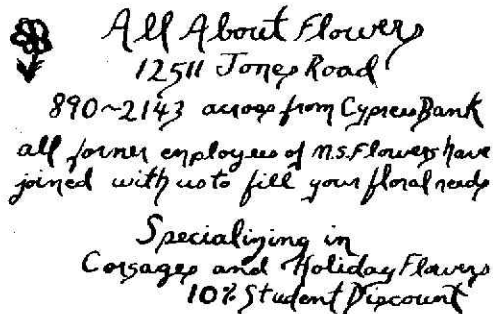 All About Flowers
12511 Jones Road
890~2143 across from Cypress Bank
all former employees of M.S. Flowers have
joined with us to fill your floral needs
Specializing in
Corsages and Holiday Flowers
10% Student Discount